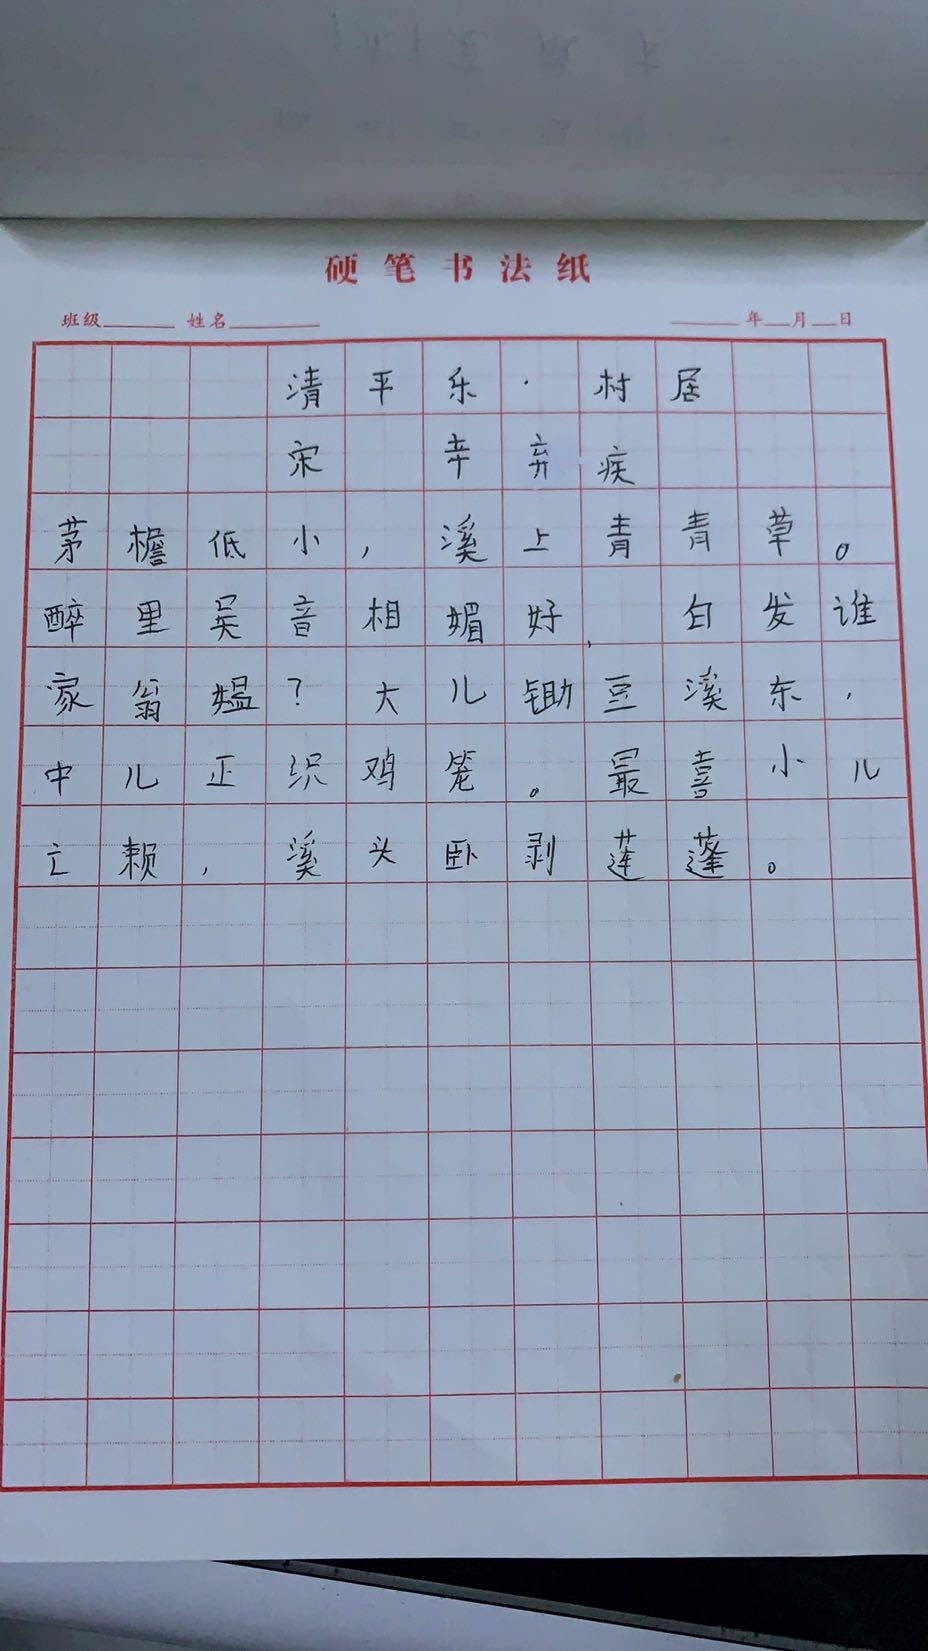 硬笔书法纸
班级 姓名 年 月 日
清平乐·村居
宋 辛弃疾
茅檐低小，溪上青青草。
醉里吴音相媚好，白发谁
家翁媪？大儿锄豆溪东，
中儿正织鸡笼。最喜小儿
亡赖，溪头卧剥莲蓬。